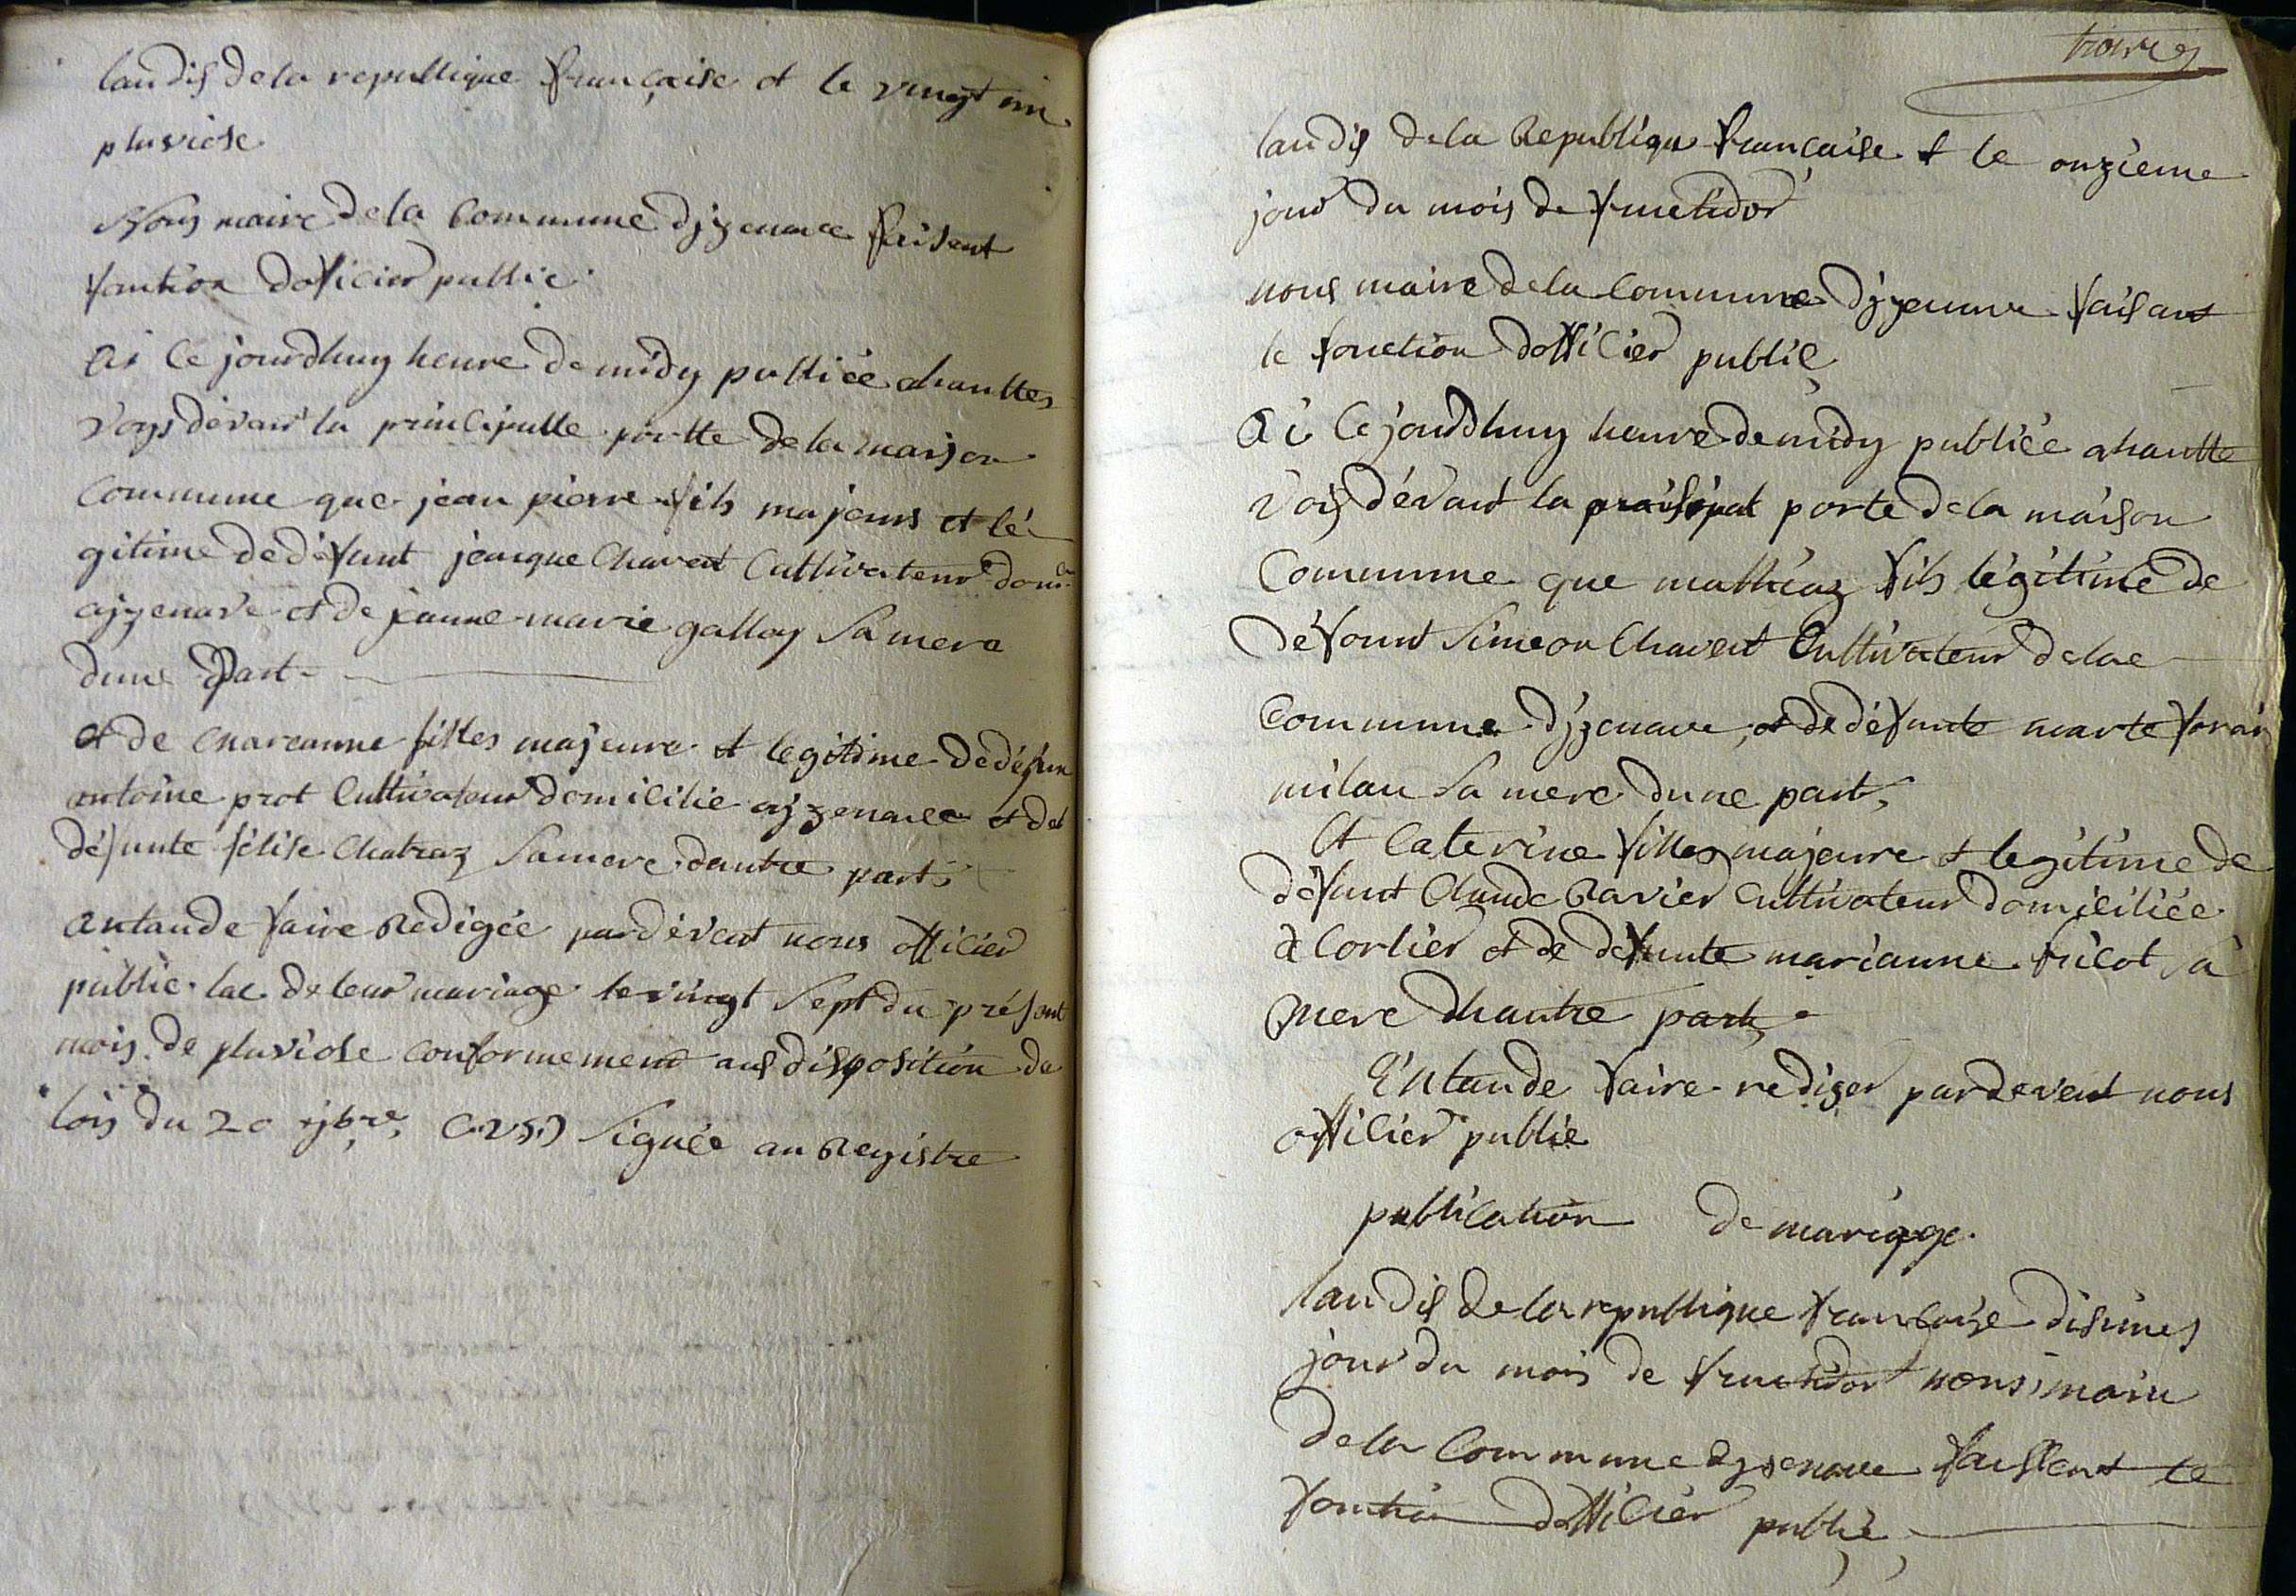 landis de la republique française et le vingt un
pluviose
Nous maire de la commune djzenave faisent
fontion doficier public
ai ce jourdhuy heure de midy publiée ahauttes
voys devant la principalle portte de la maison
commune que jean pierre fils majeurs et lé
gitime de défunt jeacque Chavent Cultivateur dom
ajzenave et de jeanne marie gallay sa mere
dune part
et de marianne filles majeure et legitime de défun
antoine prot Cultivateur domicilie ajzenave et de
défunte félise Chatraz sa mere dautre part
antande faire Redigée pardévent nous officier
public lac de leur mariage le vingt sept du présent
mois de pluviose conformement aus disposition de
lois du 20 7bre (v.s.) signée au Registre
troire
landis de la Republique française et le onzieme
jour du mois de fructidor
nous maire de la commune djzenave faisant
le fonction dofficier public
ai ce jourdhuy heure de midy publiée ahautte
vois dévant la prinsipal porte de la maison
Commune que mathieaz fils légitime de
défunt Simeon Chavent Cultivateur de lae
commune djzenave, et de défunte marte
milan sa mere dune part,
Et Caterine filles majeure et legitime de
défunt Claude Ravier Cultivateur domiciliée
à Corlier et de défunte marianne fricot sa
mere dhautre part
Entande faire rediger pardevent nous
officier public
publication de mariage
landis de la republique françaize disimes
jour du mois de fructidor nous maire
de la Commune djzenave faissent le
fontion dofficier public